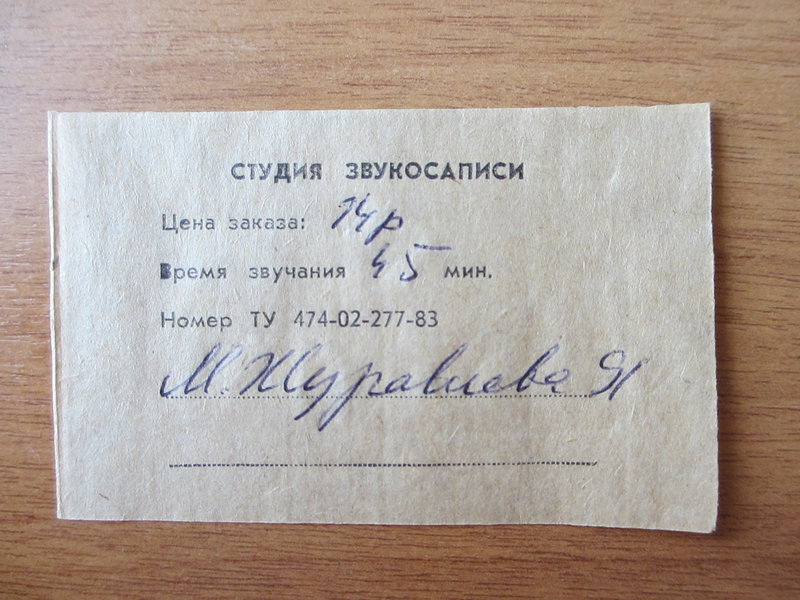 СТУДИЯ ЗВУКОСАПИСИ
Цена заказа: 14р
Время звучания 45 мин.
Номер ТУ 474-02-277-83
М. Журавлева 91